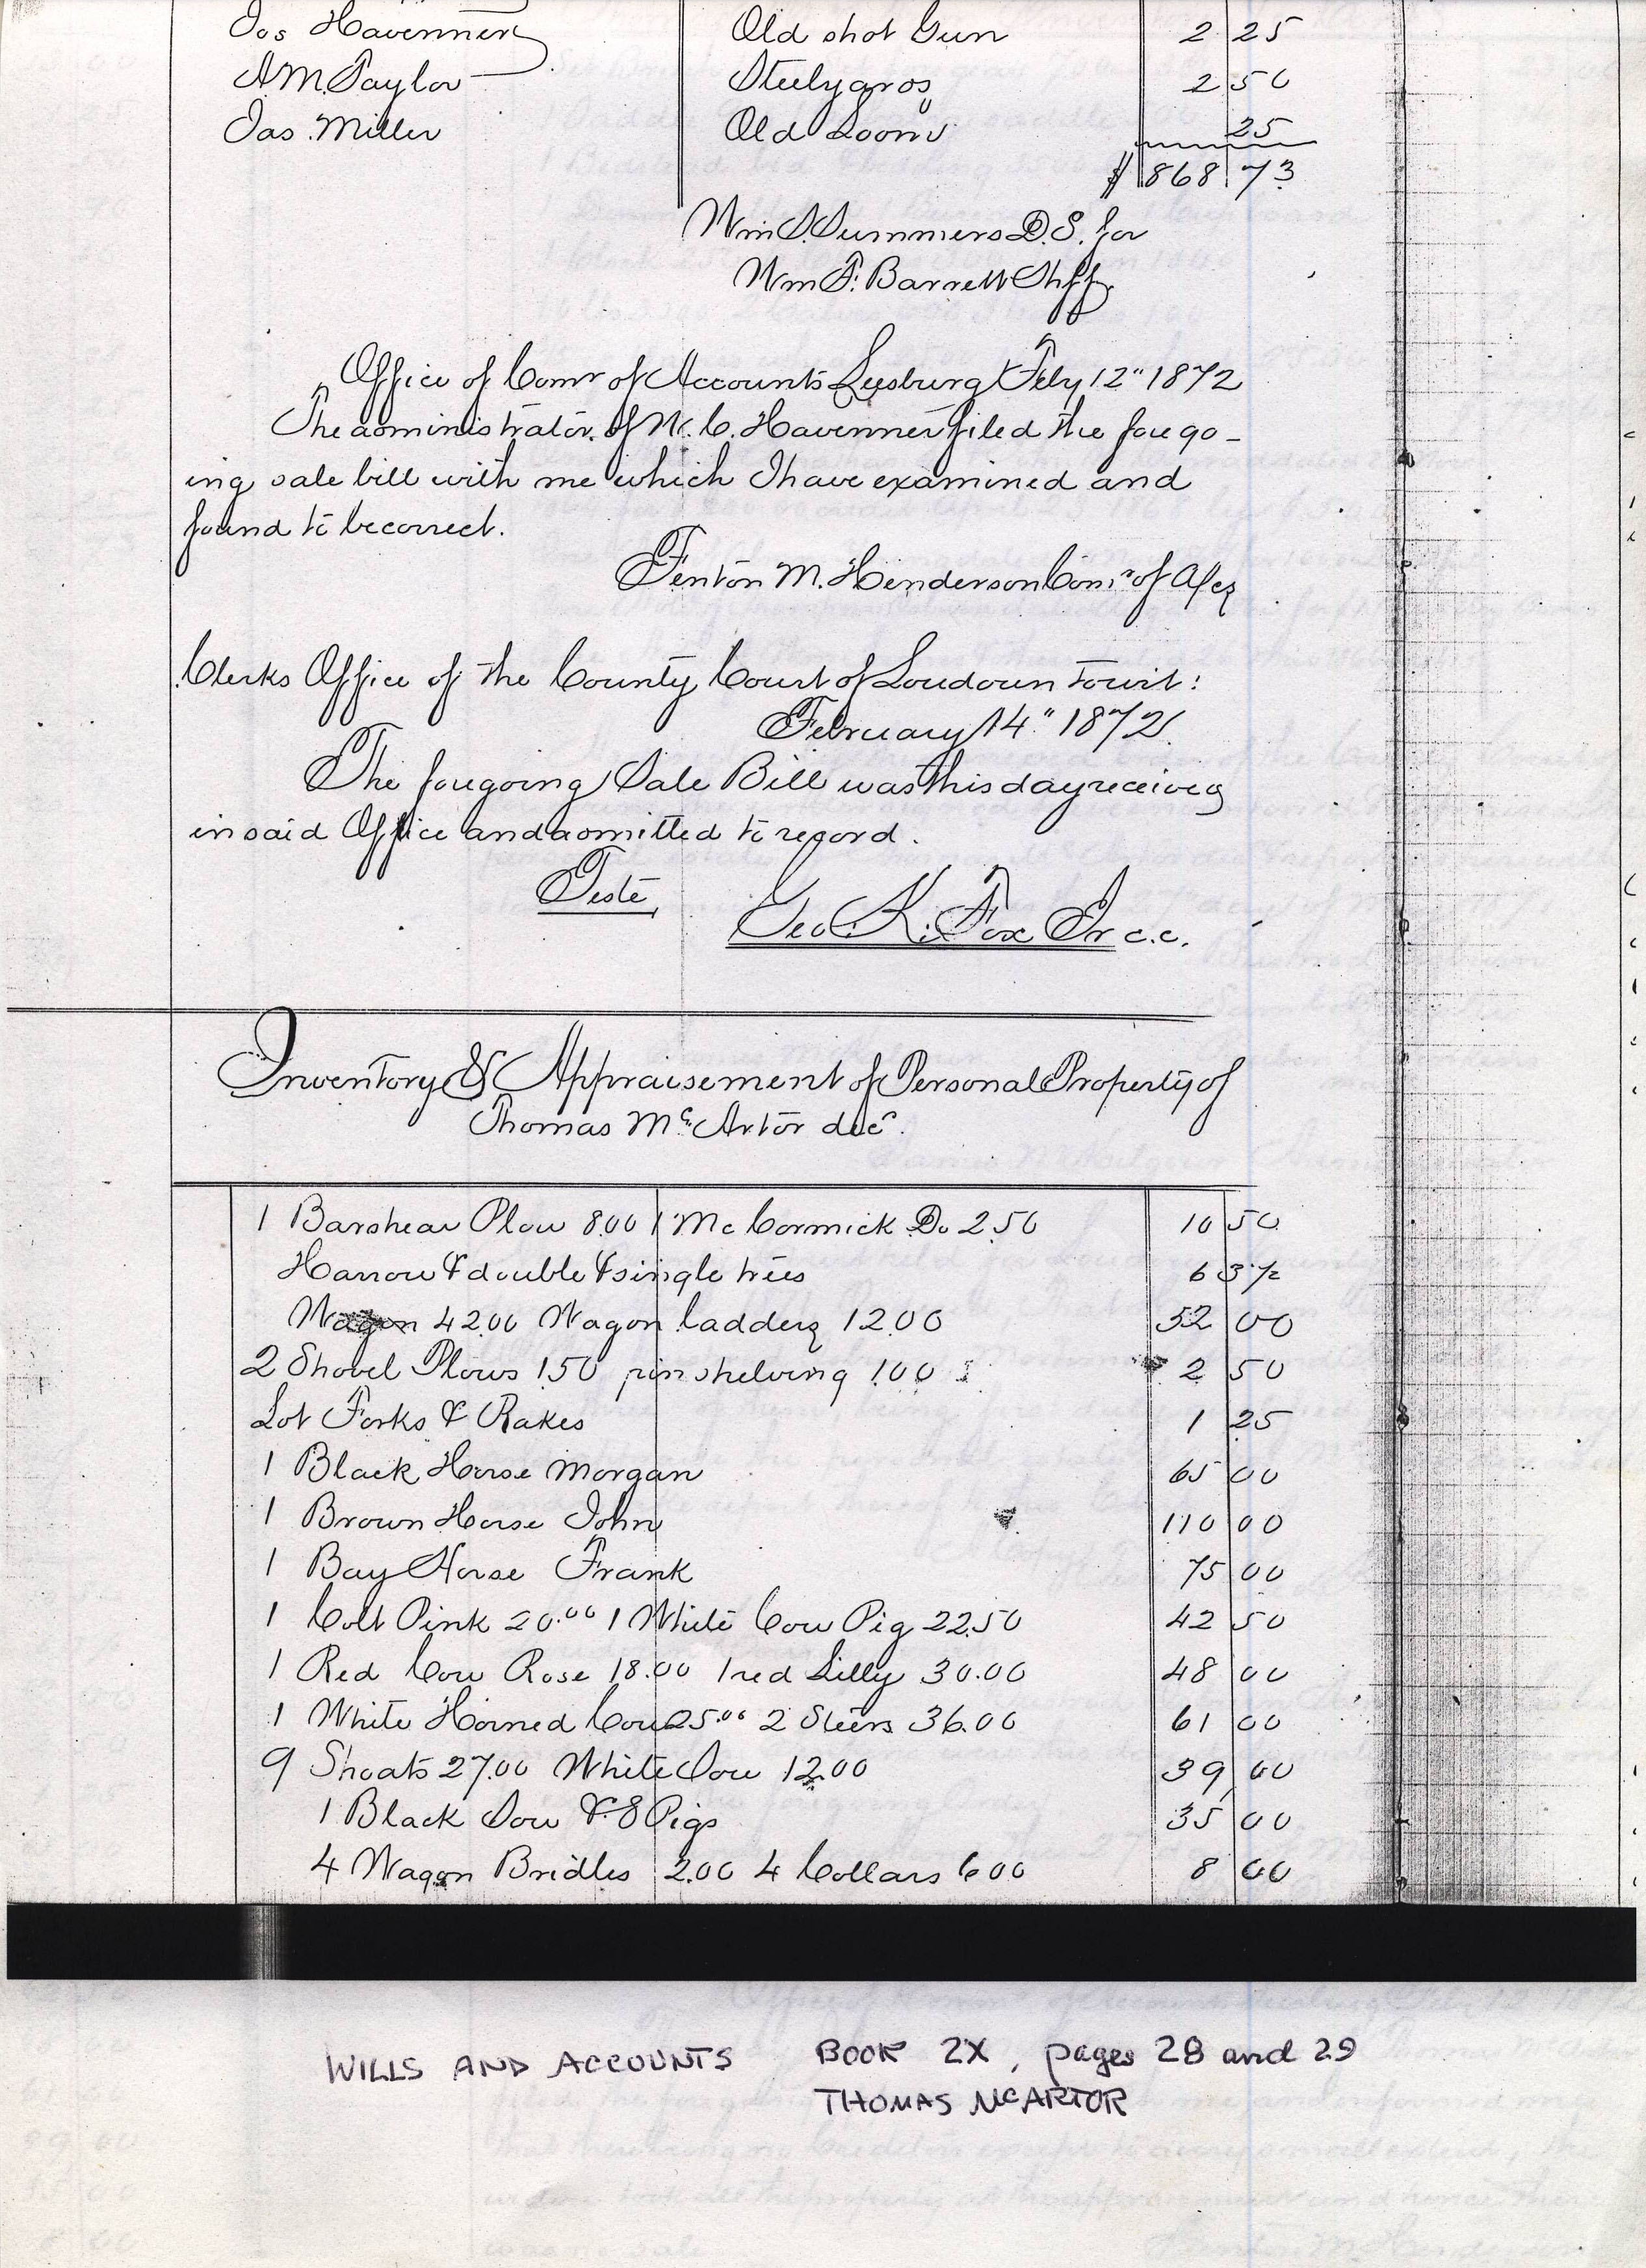 Jos Havenner Old shot Gun 2 25
A M. Taylor Steelyards 2 50
Jas. Miller Old Loom 25
$ 868 73
Wm S. Summers D. S. for
Wm F. Barrett Shff
Office of Comr of Accounts Leesburg Feby 12" 1872
The administrator of W. C. Havenner filed the forego-
ing sale bill with me which I have examined and
found to be correct.
Fenton M. Henderson Comr of A/cs
Clerks Office of the County Court of Loudoun towit:
February 14" 1872.
The foregoing Sale Bill was this day received
in said Office and admitted to record.
Teste,
Geo. K. Fox Jr c.c.
Inventory & Appraisement of Personal Property of
Thomas McArtor decd.
1 Barshear Plow 8.00 1 McCormick Do 2.50 10 50
Harrow & double & single trees 6 37½
Wagon 42.00 Wagon ladders 12.00 52 00
2 Shovel Plows 1.50 shelving 1.00 2 50
Lot Forks & Rakes 1 25
1 Black Horse Morgan 65 00
1 Brown Horse John 110 00
1 Bay Horse Frank 75 00
1 Colt Pink 20.00 1 White Cow Pig 22.50 42 50
1 Red Cow Rose 18.00 1 red Lilly 30.00 48 00
1 White Horned Cow 25.00 2 Steers 36.00 61 00
9 Shoats 27.00 White Sow 12.00 39 00
1 Black Sow & 8 Pigs 35 00
4 Wagon Bridles 2.00 4 Collars 6 00 8 00
WILLS AND ACCOUNTS BOOK 2X, pages 28 and 29
THOMAS McARTOR